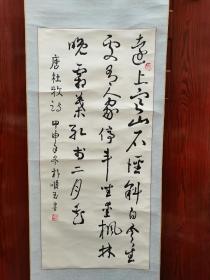 遠上寒山石徑斜白雲生
處有人家停車坐愛楓林
晚霜葉紅於二月花
唐杜牧詩 甲申年